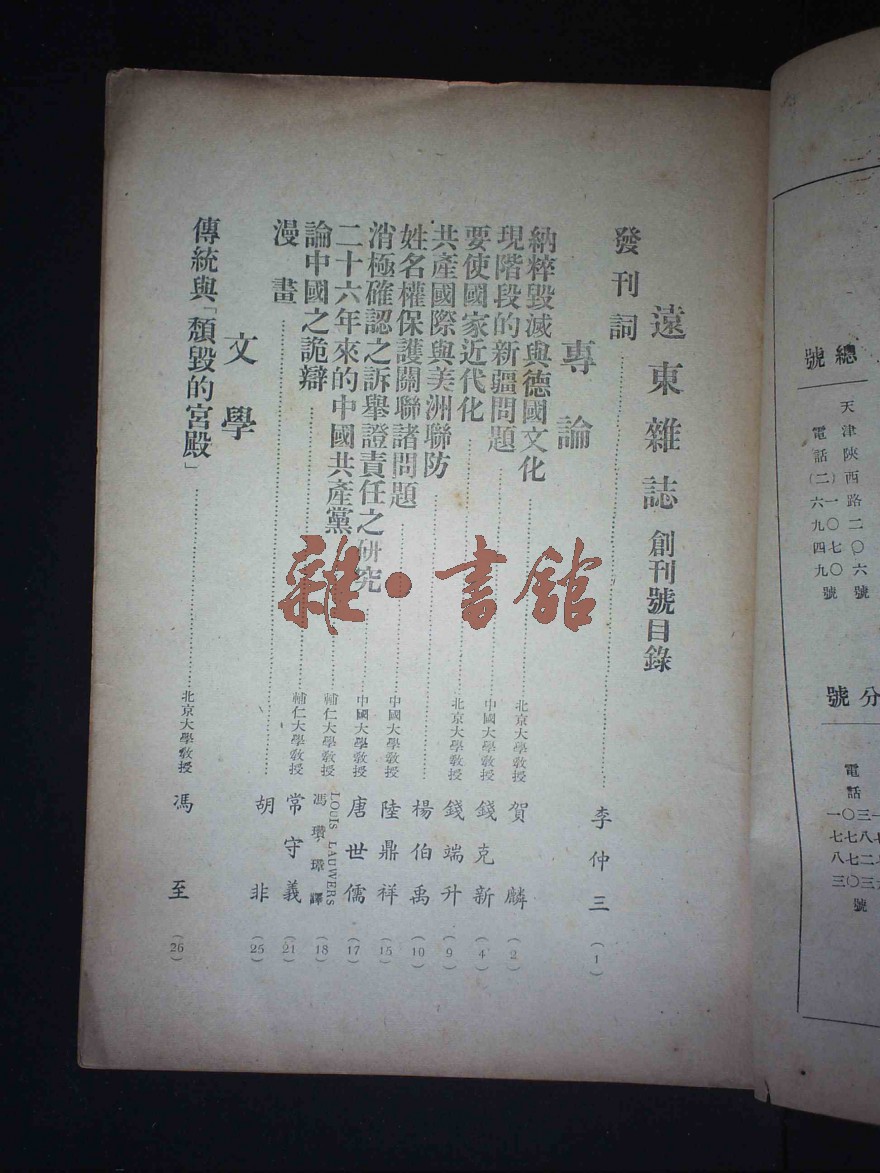 總號
天津陝西路二〇六號
電話(二)一〇七〇
六九四九號
分號
電話
號
遠東雜誌 創刊號目錄
發刊詞 李仲三 (1)
專論
納粹毀滅與德國文化 北京大學教授 賀麟 (2)
現階段的新疆問題 中國大學教授 錢克新 (4)
要使國家近代化 北京大學教授 錢端升 (9)
共產國際與美洲聯防 楊伯禹 (10)
姓名權保護關聯諸問題 中國大學教授 陸鼎祥 (15)
消極確認之訴舉證責任之研究 中國大學教授 唐世儒 (17)
二十六年來的中國共產黨 輔仁大學教授 LOUIS LAUWERS 馮瓚璋譯 (18)
論中國之詭辯 輔仁大學教授 常守義 (21)
漫畫 胡非 (25)
文學
傳統與「頹毀的宮殿」 北京大學教授 馮至 (26)
雜·書館